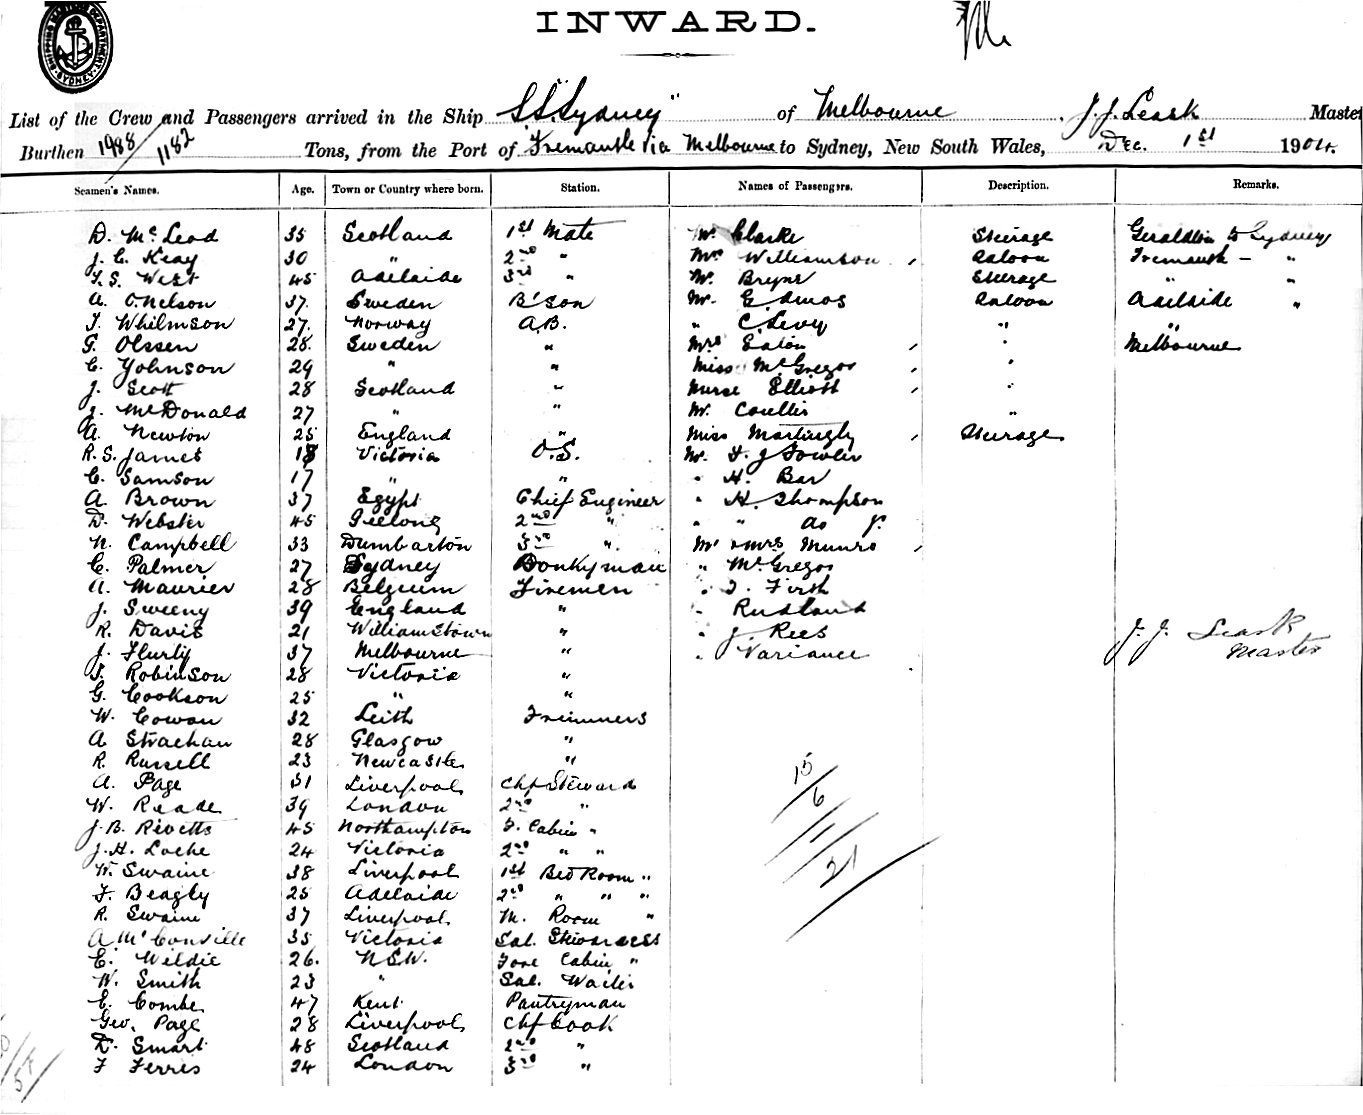 SHIPPING MASTERS DEPARTMENT SYDNEY
INWARD.
List of the Crew and Passengers arrived in the Ship S.S. "Sydney" of Melbourne. J. J. Leask Master
Burthen 1988 / 1182 Tons, from the Port of Fremantle via Melbourne to Sydney, New South Wales, Dec. 1st 1904.
Seamen's Names. Age. Town or Country where born. Station. Names of Passengers. Description. Remarks.
D. McLeod 35 Scotland 1st Mate Mr Clarke Steerage Geraldton to Sydney
J. C. Keay 30 " 2nd " Mrs Williamson Saloon Fremantle - "
T. S. West 45 Adelaide 3rd " Mr Bryne Steerage " "
A. O. Nelson 37. Sweden B'Son Mr E Amos Saloon Adelaide "
T. Whilmson 27. Norway A.B. " C. Levy " "
G. Olssen 28. Sweden " Mrs Eaton " Melbourne
C. Yohnson 29 " " Miss McGregor "
J. Scott 28 Scotland " Nurse Elliott "
J. McDonald 27 " " Mr Coullie "
A. Newton 25 England " Miss Martingly Steerage
R. S. James 18 Victoria O.S. Mr F. J Fowler
C. Samson 17 " " " H. Bar
A Brown 37 Egypt Chief Engineer " H. Thompson
D. Webster 45 Geelong 2nd " " " do J.
N. Campbell 33 Dumbarton 3rd " Mr & Mrs Munro
C. Palmer 27 Sydney Donkyman " McGregor
A. Maurier 28 Belgium Firemen " T. Firth
J. Sweeny 39 England " " Rudland
R. Davis 21 Williamstown " " J. Rees J. J. Leask
J. Flurly 37 Melbourne " " Variance Master
T. Robinson 28 Victoria "
G. Cookson 25 " "
W. Cowan 32 Leith Trimmers
A Strachan 28 Glasgow "
R. Russell 23 Newcastle "
A. Page 31 Liverpool Chf Steward
W. Reade 39 London 2nd "
J. B. Rivetts 45 Northampton F. Cabin "
J. H. Loche 24 Victoria 2nd " "
W. Swaine 38 Liverpool 1st Bed Room "
F. Beagly 25 Adelaide 2nd " " "
R. Swaine 37 Liverpool M. Room "
A McConville 35 Victoria Sal. Stewardess
C. Wildie 26. N.S.W. Fore Cabin "
W. Smith 23 " Sal. Waiter
E. Combe 47 Kent Pantryman
Geo. Page 28 Liverpool Chf Cook
D. Smart 48 Scotland 2nd "
F Ferris 24 London 3rd "
15/6
21